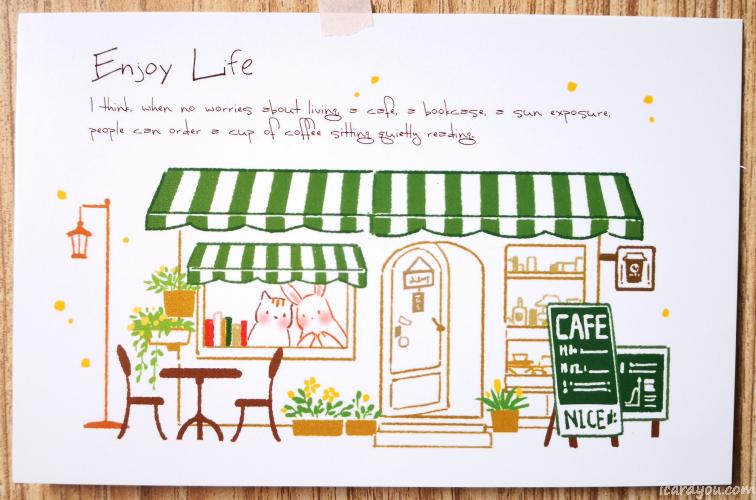 Enjoy Life
I think, when no worries about living, a cafe, a bookcase, a sun exposure,
people can order a cup of coffee sitting quietly reading.
CAFE
NICE
icarayou.com